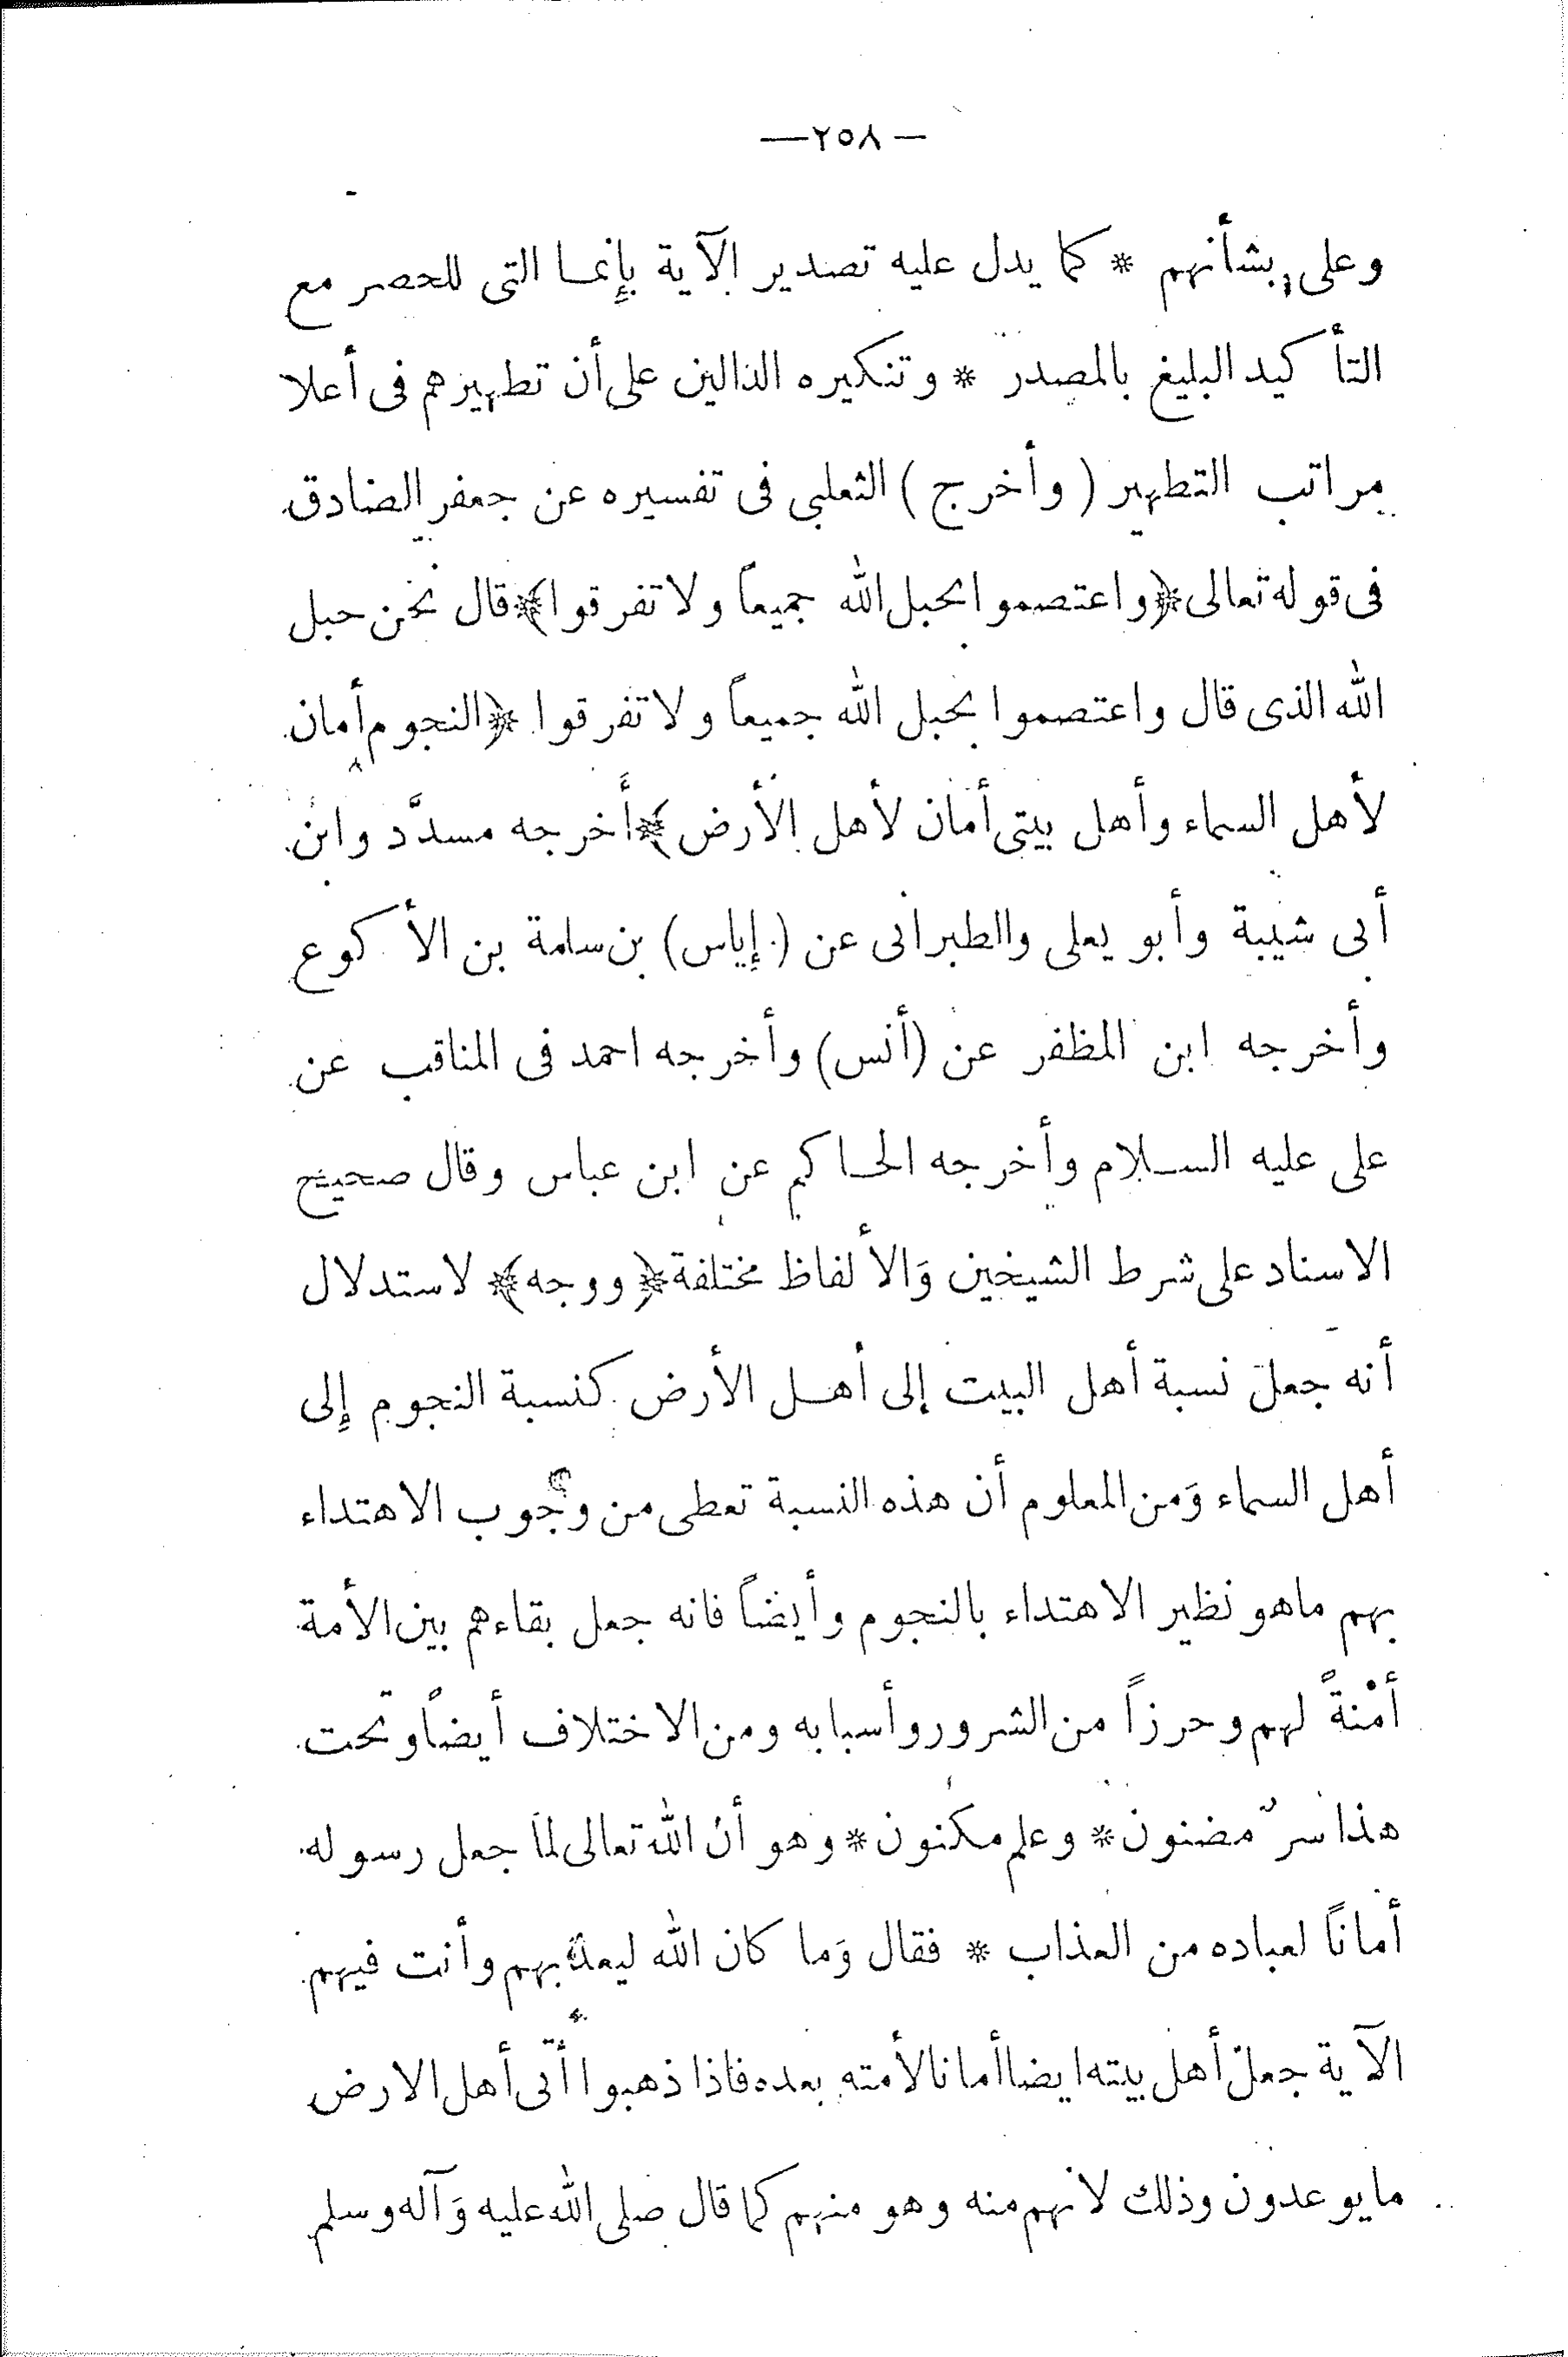 —٢٥٨—
وعلى بشأنهم * كما يدل عليه تصدير الآية بإنما التى للحصر مع
التأكيد البليغ بالمصدر * وتنكيره الدالين على أن تطهيرهم فى أعلا
مراتب التطهير ( وأخرج ) الثعلبى فى تفسيره عن جعفر الصادق
فى قوله تعالى ﴿واعتصموا بحبل الله جميعاً ولا تفرقوا﴾ قال نحن حبل
الله الذى قال واعتصموا بحبل الله جميعاً ولا تفرقوا ﴿النجوم أمان
لأهل السماء وأهل بيتى أمان لأهل الأرض﴾ أخرجه مسدَّد وابن
أبى شيبة وأبو يعلى والطبرانى عن (إياس) بن سلمة بن الأكوع
وأخرجه ابن المظفر عن (أنس) وأخرجه احمد فى المناقب عن
على عليه السلام وأخرجه الحاكم عن ابن عباس وقال صحيح
الاسناد على شرط الشيخين وَالألفاظ مختلفة ﴿ووجه﴾ لاستدلال
أنه جعل نسبة أهل البيت إلى أهل الأرض كنسبة النجوم إلى
أهل السماء وَمن المعلوم أن هذه النسبة تعطى من وجوب الاهتداء
بهم ماهو نظير الاهتداء بالنجوم وأيضاً فانه جعل بقاءهم بين الأمة
أمْنةً لهم وحرزاً من الشرور وأسبابه ومن الاختلاف أيضاً وتحت
هذا سرٌ مضنون * وعلم مكنون * وهو أن الله تعالى لما جعل رسوله
أماناً لعباده من العذاب * فقال وَما كان الله ليعذبهم وأنت فيهم
الآية جعل أهل بيته ايضا أمانا لأمته بعده فاذا ذهبوا أتى أهل الارض
ما يوعدون وذلك لانهم منه وهو منهم كما قال صلى الله عليه وَآله وسلم